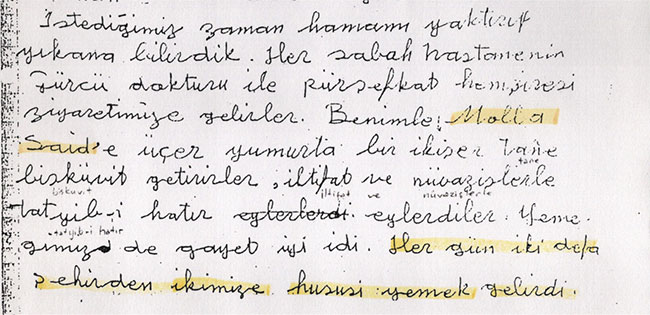 İstediğimiz zaman hamamı yaktırıp
yıkana bilirdik. Her sabah hastanenin
Gürcü dokturu ile pürşefkat hemşiresi
ziyaretimize gelirler. Benimle Molla
Said'e üçer yumurta bir ikişer tane
tane
bisküvit getirirler, iltifat ve nüvazişlerle
bisküvit iltifat ve nüvazişlerle
tatyib-i hatır eylerlerdi eylerdiler. Yeme-
tatyib-i hatır
ğimizde gayet iyi idi. Her gün iki defa
şehirden ikimize hususi yemek gelirdi.